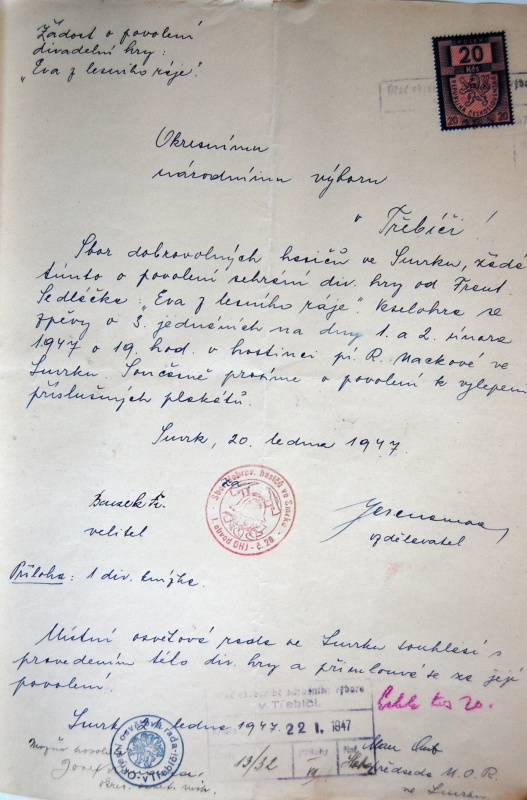 Žádost o povolení
divadelní hry:
„Eva z lesního ráje".
20
Kčs
20 20
Okresnímu
národnímu výboru
v Třebíči!
Sbor dobrovolných hasičů ve Smrku, žádá
tímto o povolení sehrání div. hry od Frant.
Sedláčka: „Eva z lesního ráje". Veselohra se
zpěvy o 3. jednáních na dny 1. a 2. února
1947 o 19 hod. v hostinci pí. R. Mackové ve
Smrku. Současně prosíme o povolení k vylepení
příslušných plakátů.
Smrk, 20. ledna 1947.
Za
Sbor dobrov. hasičů ve Smrku
I. obvod OHJ - č. 20
velitel
vzdělavatel
Příloha: 1 div. knížka.
Místní osvětová rada ve Smrku souhlasí s
provedením této div. hry a přimlouvá se za její
povolení.
Kčs 20.
Smrk, ledna 1947.
národního výboru
v Třebíči.
22 I. 1947
13/32
Přílohy
Okresní osvětová rada
v Třebíči
Josef
předseda M.O.R.
ve Smrku